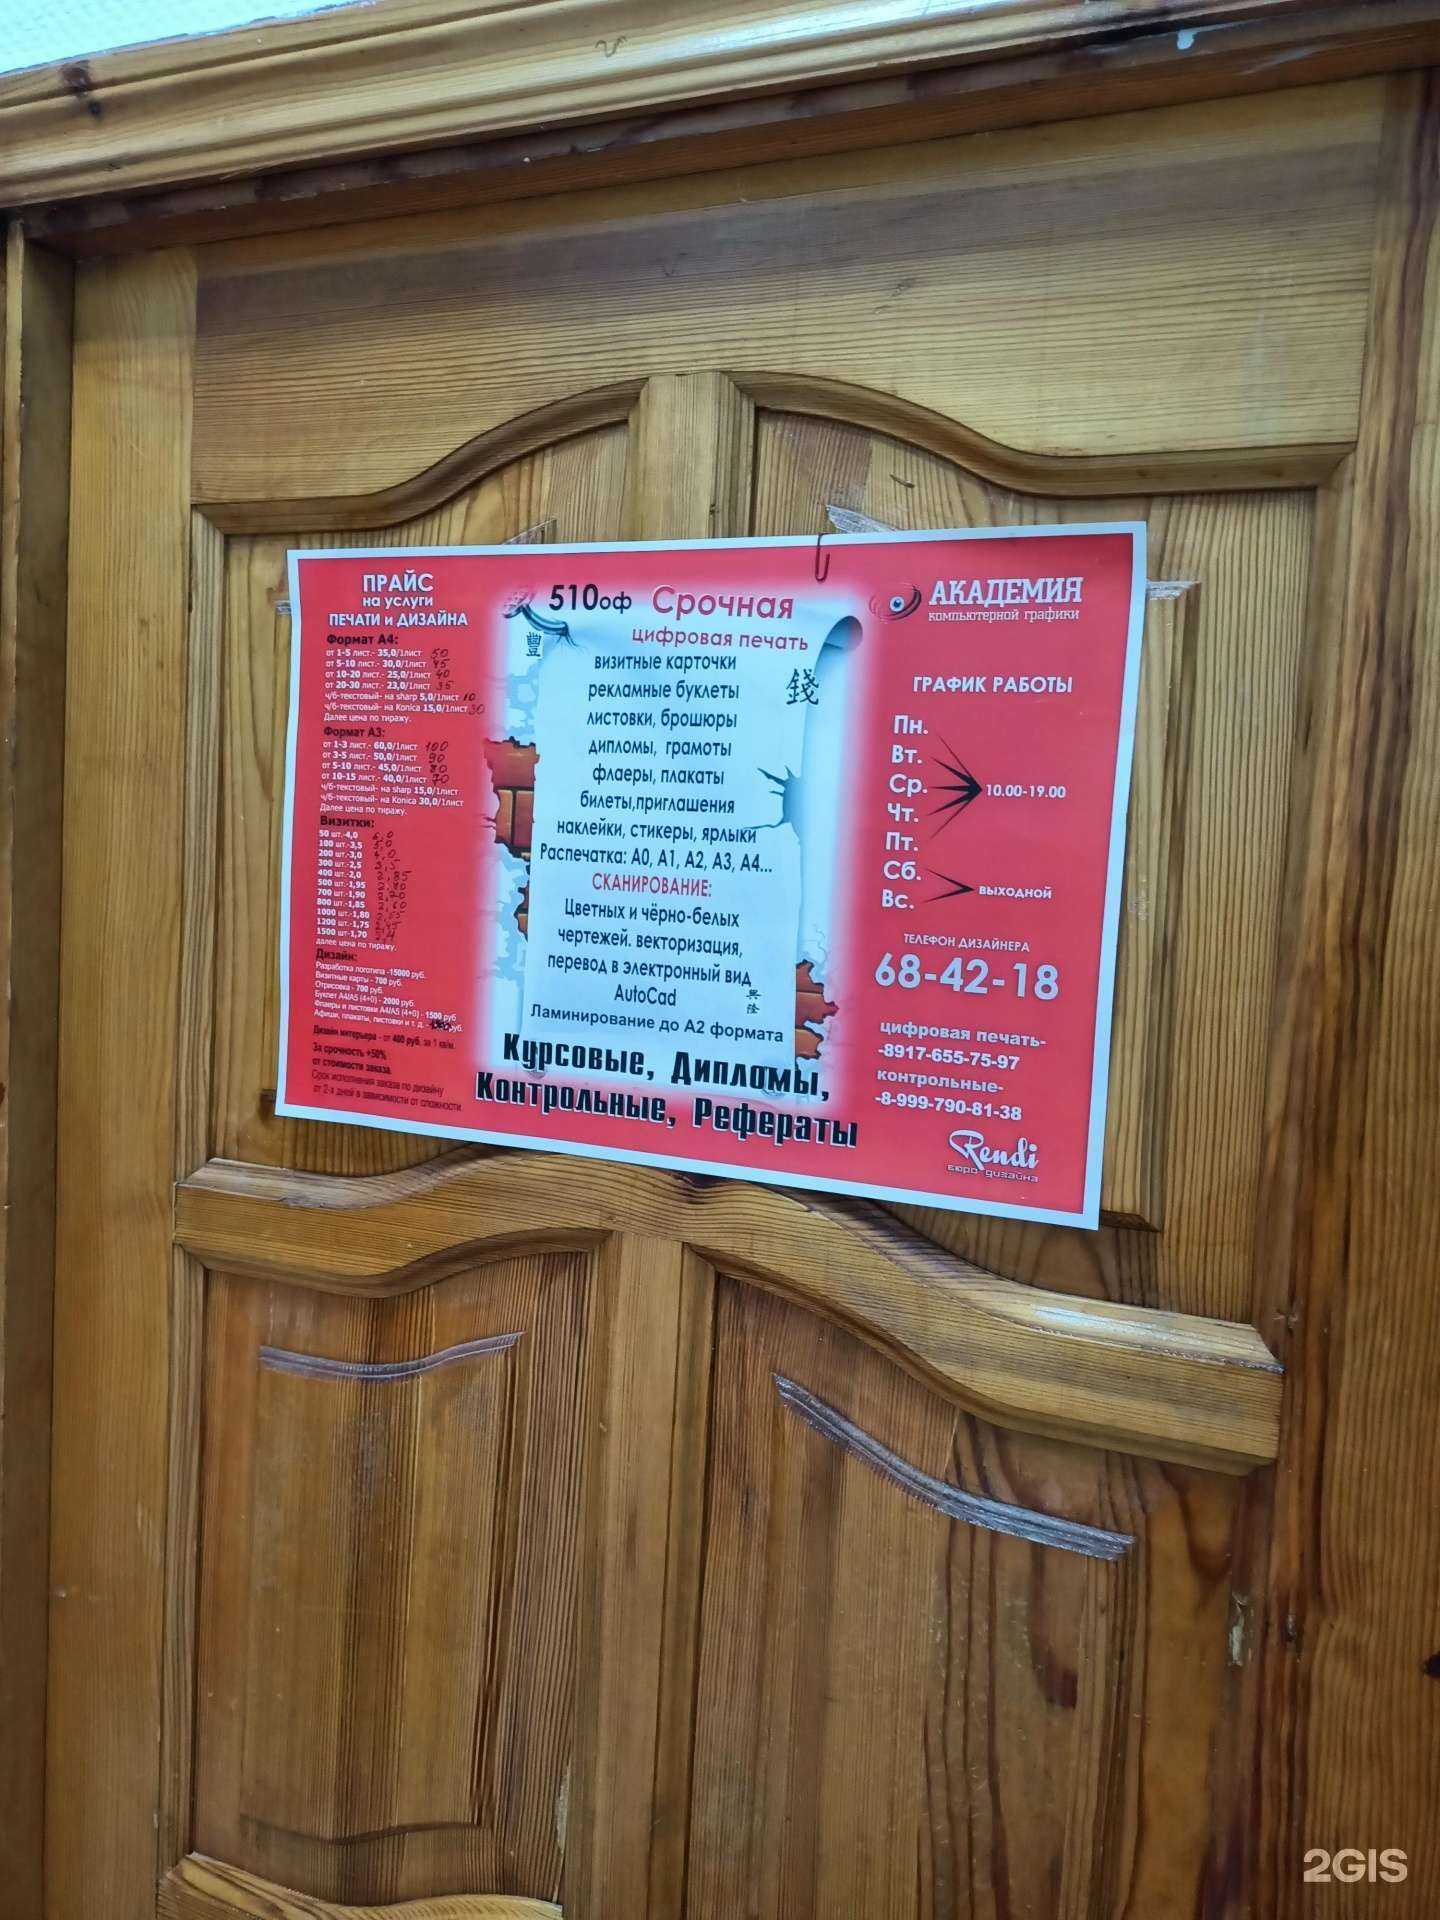 ПРАЙС
на услуги
ПЕЧАТИ и ДИЗАЙНА
Формат А4:
от 1-5 лист.- 35,0/1лист 50
от 5-10 лист.- 30,0/1лист 45
от 10-20 лист.- 25,0/1лист 40
от 20-30 лист.- 23,0/1лист 35
ч/б-текстовый- на sharp 5,0/1лист 10
ч/б-текстовый- на Konica 15,0/1лист 30
Далее цена по тиражу.
Формат А3:
от 1-3 лист.- 60,0/1лист 100
от 3-5 лист.- 50,0/1лист 90
от 5-10 лист.- 45,0/1лист 80
от 10-15 лист.- 40,0/1лист 70
ч/б-текстовый- на sharp 15,0/1лист
ч/б-текстовый- на Konica 30,0/1лист
Далее цена по тиражу.
Визитки:
50 шт.-4,0
100 шт.-3,5 5,0
200 шт.-3,0 4,0
300 шт.-2,5 3,5
400 шт.-2,0 2,85
500 шт.-1,95 2,80
700 шт.-1,90 2,70
800 шт.-1,85 2,60
1000 шт.-1,80 2,55
1200 шт.-1,75 2,45
1500 шт-1,70
далее цена по тиражу.
Дизайн:
Разработка логотипа -15000 руб.
Визитные карты - 700 руб.
Отрисовка - 700 руб.
Буклет А4/А5 (4+0) - 2000 руб.
Флаеры и листовки А4/А5 (4+0) - 1500 руб
Афиши, плакаты, листовки и т. д. - руб.
Дизайн интерьера - от 400 руб. за 1 кв/м.
За срочность +50%
от стоимости заказа.
Срок исполнения заказа по дизайну
от 2-х дней в зависимости от сложности.
510оф Срочная
цифровая печать
豐
錢
визитные карточки
рекламные буклеты
листовки, брошюры
дипломы, грамоты
флаеры, плакаты
билеты,приглашения
наклейки, стикеры, ярлыки
Распечатка: А0, А1, А2, А3, А4...
СКАНИРОВАНИЕ:
Цветных и чёрно-белых
чертежей. векторизация,
перевод в электронный вид
AutoCad
興隆
Ламинирование до А2 формата
Курсовые, Дипломы,
Контрольные, Рефераты
АКАДЕМИЯ
компьютерной графики
ГРАФИК РАБОТЫ
Пн.
Вт.
Ср. 10.00-19.00
Чт.
Пт.
Сб. выходной
Вс.
ТЕЛЕФОН ДИЗАЙНЕРА
68-42-18
цифровая печать-
-8917-655-75-97
контрольные-
-8-999-790-81-38
Rendi
бюро дизайна
2GIS